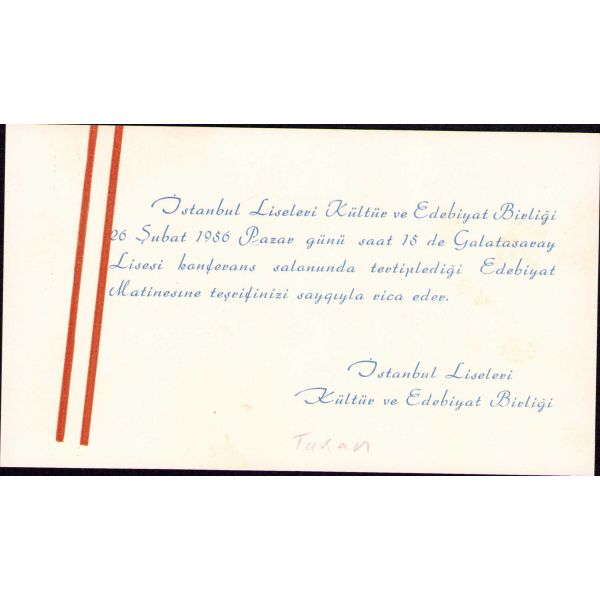 İstanbul Liseleri Kültür ve Edebiyat Birliği
26 Şubat 1956 Pazar günü saat 15 de Galatasaray
Lisesi konferans salonunda tertiplediği Edebiyat
Matinesine teşrifinizi saygıyla rica eder.
İstanbul Liseleri
Kültür ve Edebiyat Birliği
Turan